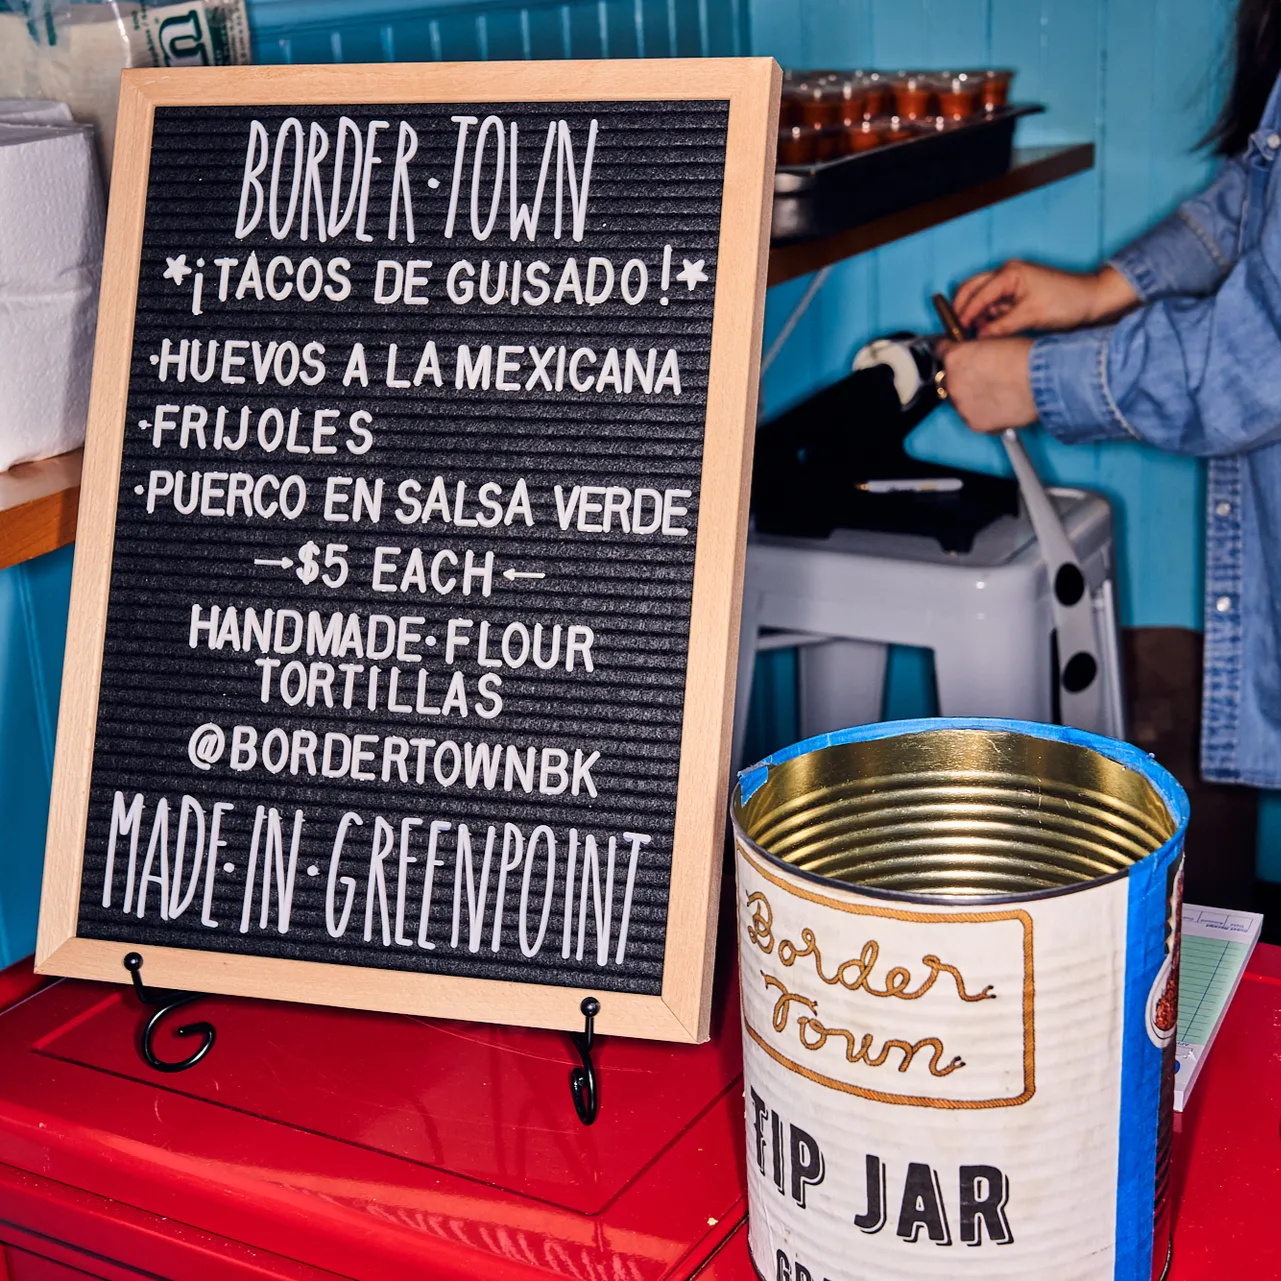 BORDER·TOWN
*¡TACOS DE GUISADO!*
·HUEVOS A LA MEXICANA
·FRIJOLES
·PUERCO EN SALSA VERDE
→$5 EACH←
HANDMADE·FLOUR
TORTILLAS
@BORDERTOWNBK
MADE·IN·GREENPOINT
Border
Town
TIP JAR